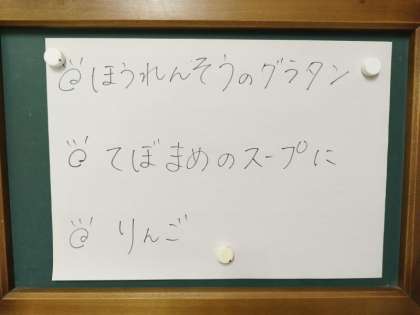 ほうれんそうのグラタン
てぼまめのスープに
りんご